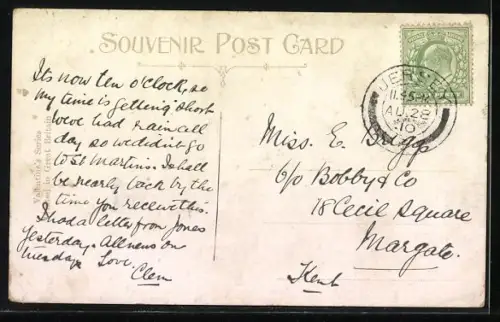 SOUVENIR POST CARD
Its now ten o'clock, so
my time is getting short
weve had rain all
day so we didnt go
to St Martins. I shall
be nearly back by the
time you receive this.
I had a letter from Jones
yesterday. All news on
Tuesday. Love.
Clem
Valentine's Series
in Great Britain
JERSEY
11.45
AU 28
10
Miss. E.
c/o Bobby & Co
18 Cecil Square
Margate.
Kent